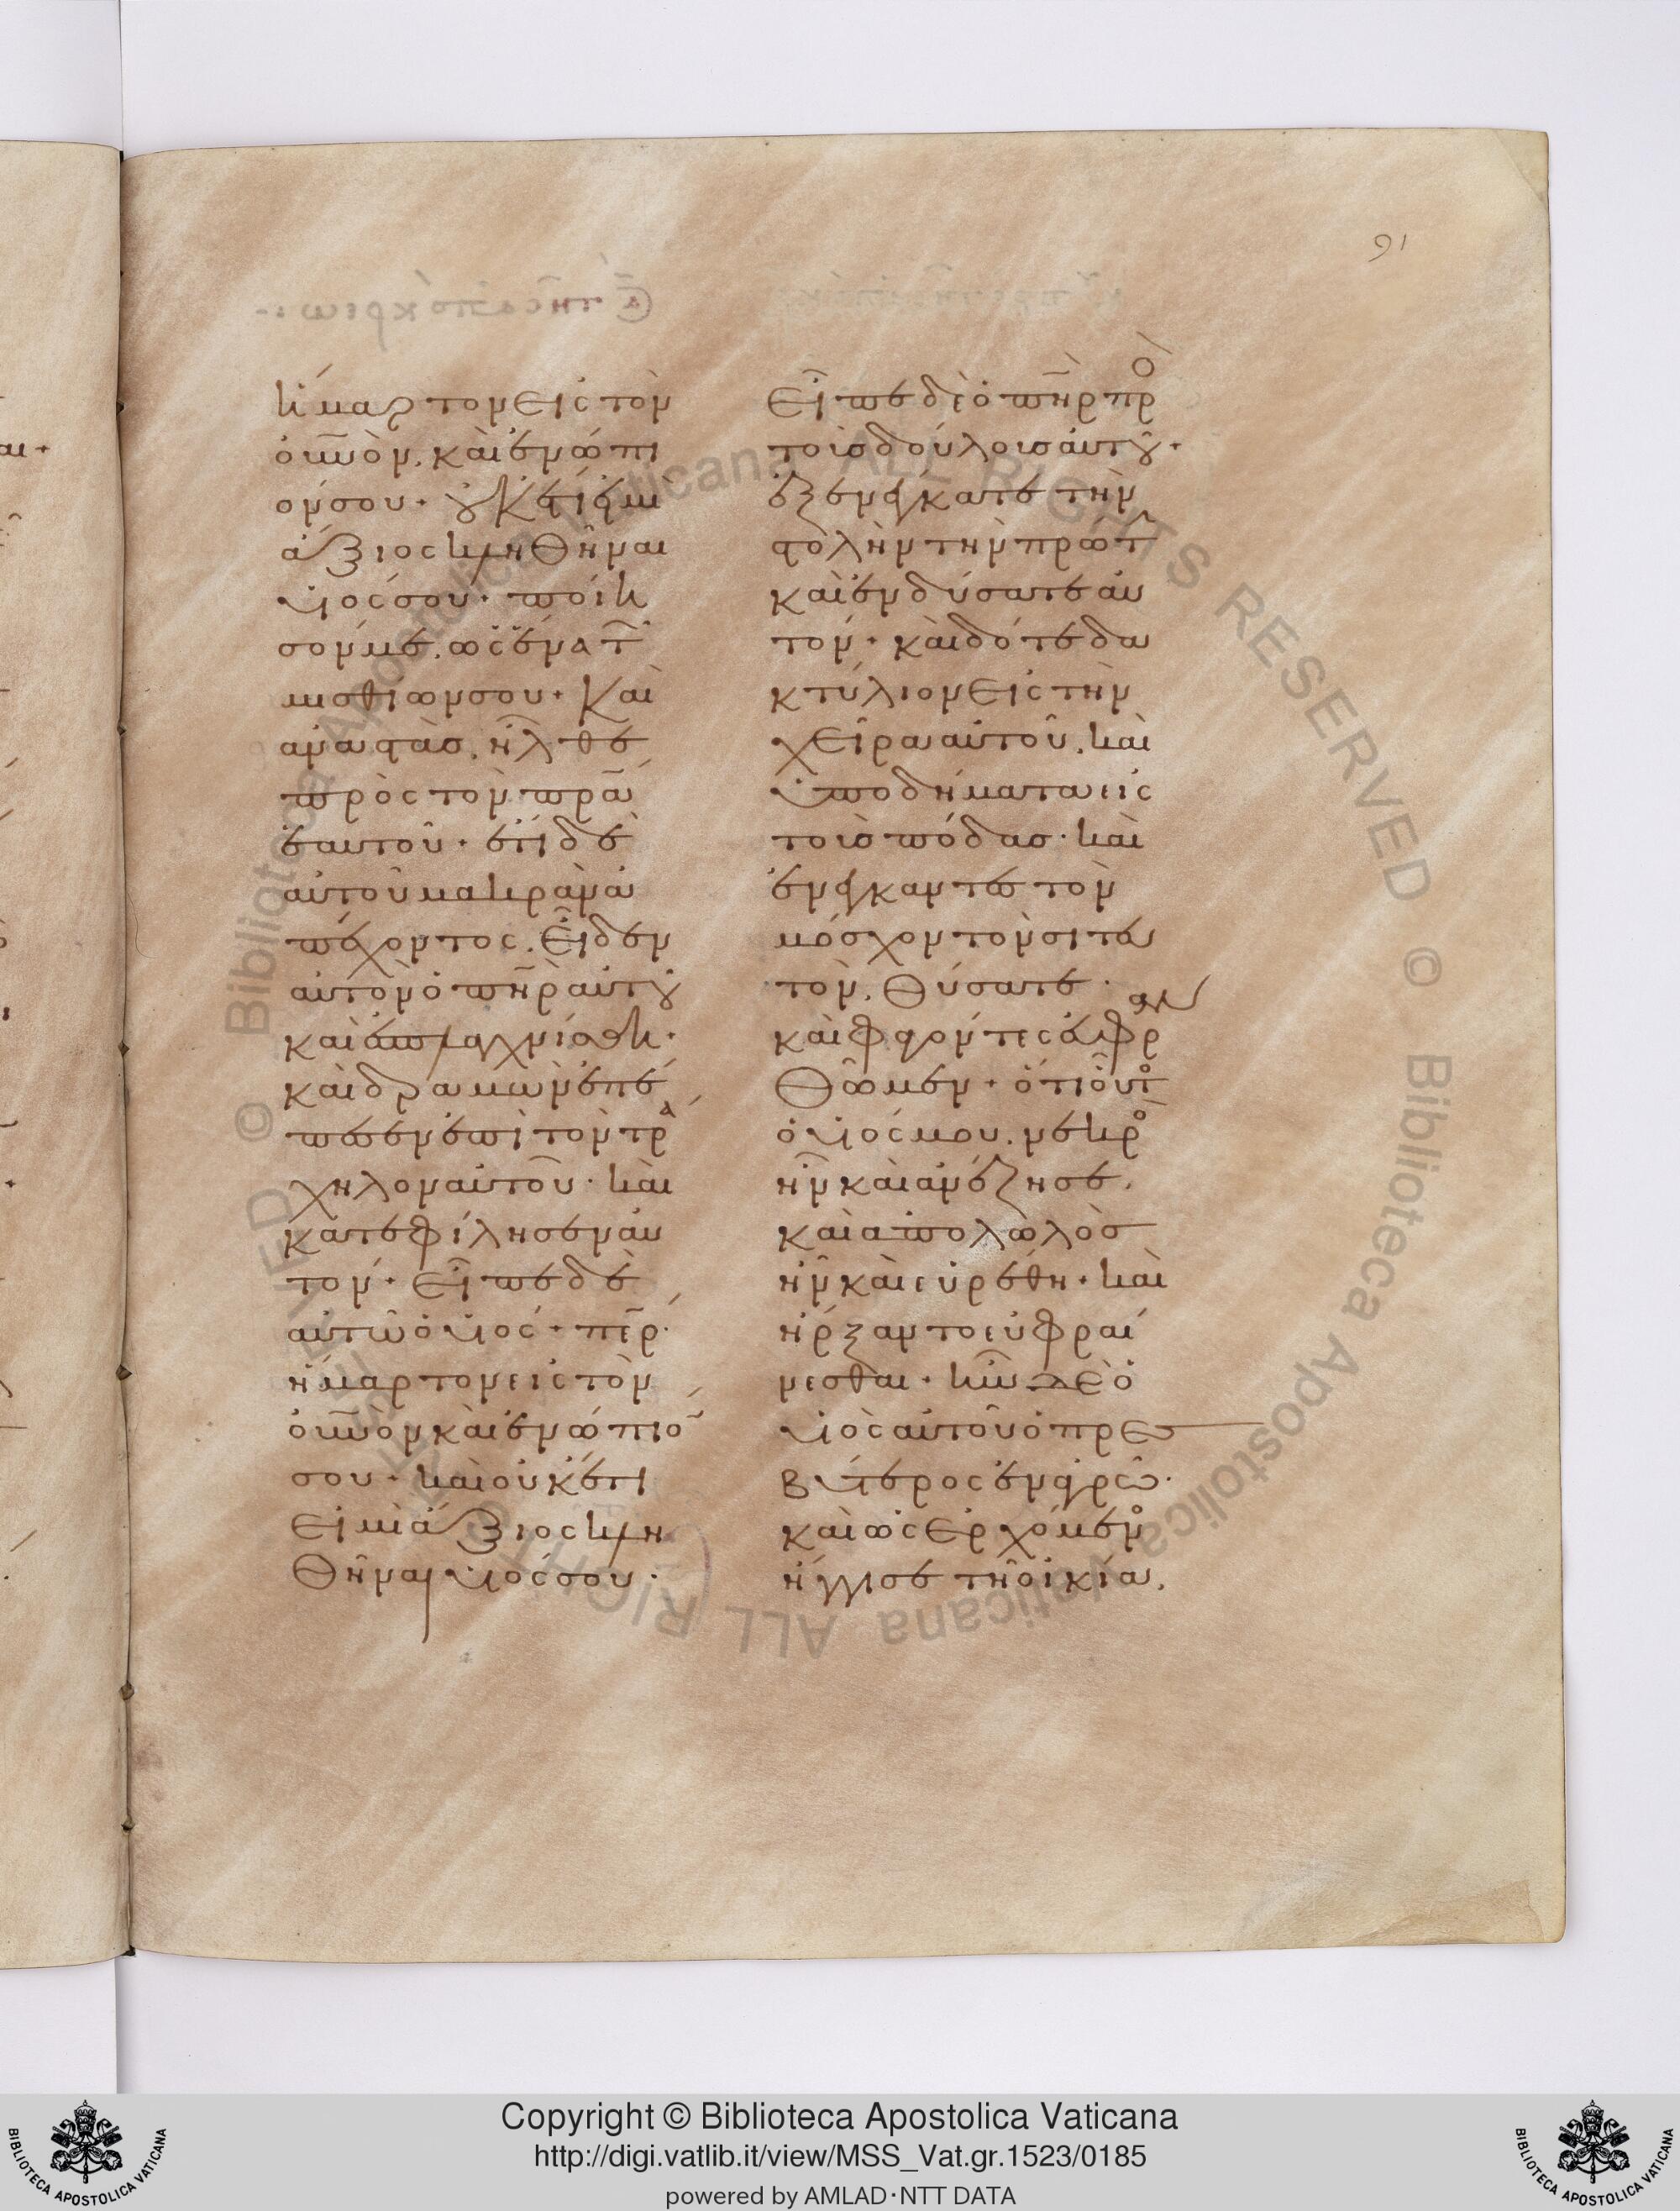 91
ἥμαρτον εἰς τὸν
οὐ̅νὸν. καὶ ἐνώπι
όν σου. οὐκέτι εἰμὶ
ἄξιος κληθῆναι
υἱός σου. ποίη
σόν με. ὡς ἕνα τ
μισθίων σου. Καὶ
ἀναστὰσ. ἦλθε
πρὸς τὸν πρ̅α
ἑαυτοῦ. ἔτι δὲ
αὐτοῦ μακρὰν ἀ
πέχοντος. Εἶδεν
αὐτὸν ὁ πη̅ρ αὐτοῦ
καὶ ἐσπλαγχνίσθη.
καὶ δραμὼν ἐπέ
πεσεν ἐπὶ τὸν τρα
χηλον αὐτοῦ. καὶ
κατεφίλησεν αὐ
τόν. Εἶπε δὲ
αὐτῶ ὁ υἱός. πε̅ρ.
ἥμαρτον εἰς τὸν
οὐ̅νὸν καὶ ἐνώπιο
σου. καὶ οὐκέτι
εἰμὶ ἄξιος κλη
θῆναι υἱός σου.
Εἶπε δὲ ὁ πη̅ρ προ
τοὺσ δούλουσ αὐτοῦ.
ἐξενέγκατε τὴν
στολὴν τὴν πρώτ
καὶ ἐνδύσατε αὐ
τόν. καὶ δότε δα
κτύλιον εἰς τὴν
χεῖρα αὐτοῦ. καὶ
ὑποδήματα εἰς
τοὺσ πόδασ. καὶ
ἐνέγκαντες τὸν
μόσχον τὸν σιτευ
τὸν. Θύσατε.
καὶ φαγόντες εὐφραν
Θῶμεν. ὅτι οὗτο
ὁ υἱός μου. νεκρο
ἦν καὶ ἀνέζησε.
καὶ ἀπολωλὸσ
ἦν καὶ εὑρέθη. καὶ
ἤρξαντο εὐφραί
νεσθαι. ἦν δὲ ὁ
υἱὸς αὐτοῦ ὁ πρεσ
βύτερος ἐν ἀγρῶ.
καὶ ὡς ἐρχόμενο
ἤγγισε τῆ οἰκία.
Copyright © Biblioteca Apostolica Vaticana
http://digi.vatlib.it/view/MSS_Vat.gr.1523/0185
powered by AMLAD·NTT DATA
BIBLIOTECA APOSTOLICA VATICANA
BIBLIOTECA APOSTOLICA VATICANA